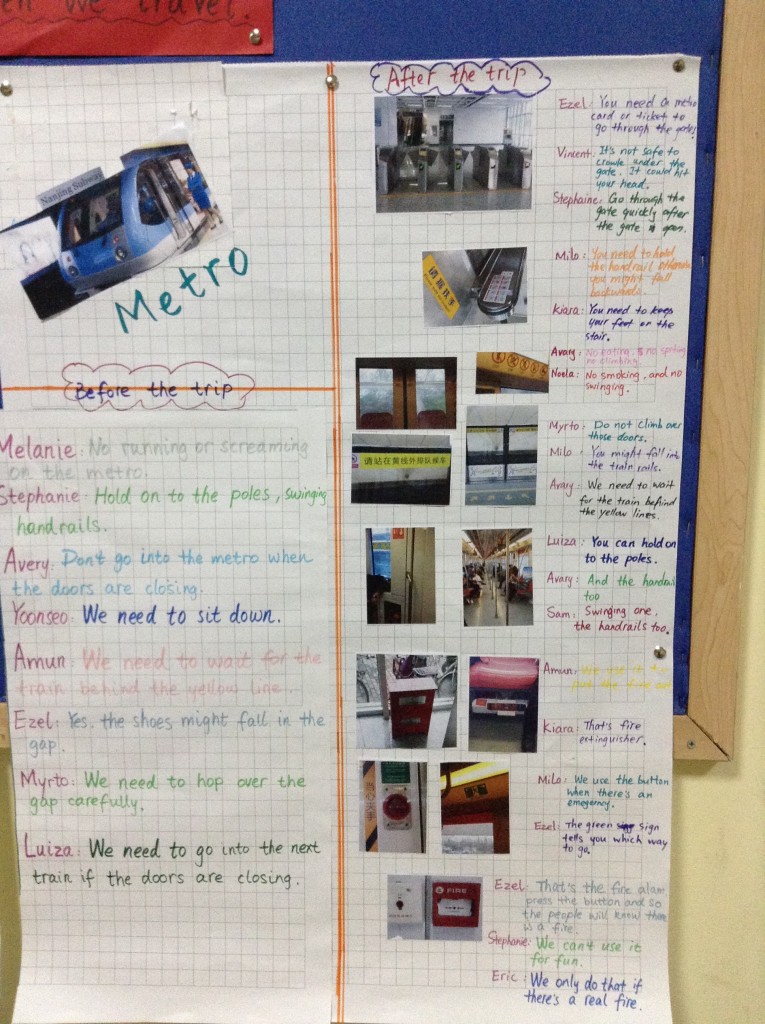 en we travel.
Nanjing Subway
Metro
Before the trip
Melanie: No running or screaming
on the metro.
Stephanie: Hold on to the poles, swinging
handrails.
Avery: Don't go into the metro when
the doors are closing.
Yoonseo: We need to sit down.
Amun: We need to wait for the
train behind the yellow line.
Ezel: Yes. the shoes might fall in the
gap.
Myrto: We need to hop over the
gap carefully.
Luiza: We need to go into the next
train if the doors are closing.
After the trip
Ezel: You need a metro
card or ticket to
go through the gate.
Vincent: It's not safe to
crawle under the
gate. It could hit
your head.
Stephaine: Go through the
gate quickly after
the gate is open.
请握扶手
Milo: You need to hold
the handrail otherwise
you might fall
backwards.
Kiara: You need to keep
your feet on the
stair.
Avary: No eating, & no spiting
no climbing.
Noela: No smoking, and no
swinging.
请站在黄线外排队候车
Myrto: Do not climb over
those doors.
Milo: You might fall into
the train rails.
Avary: We need to wait
for the train behind
the yellow lines.
Luiza: You can hold on
to the poles.
Avary: And the handrail
too
Sam: Swinging one,
the handrails too.
Amun: We use it to
put the fire out
Kiara: That's fire
extinguisher.
当心夹手
Milo: We use the button
when there's an
emegency.
Ezel: The green sign
tells you which way
to go.
FIRE
Ezel: That's the fire alarm
press the button and so
the people will know there
is a fire.
Stephanie: We can't use it
for fun.
Eric: We only do that if
there's a real fire.